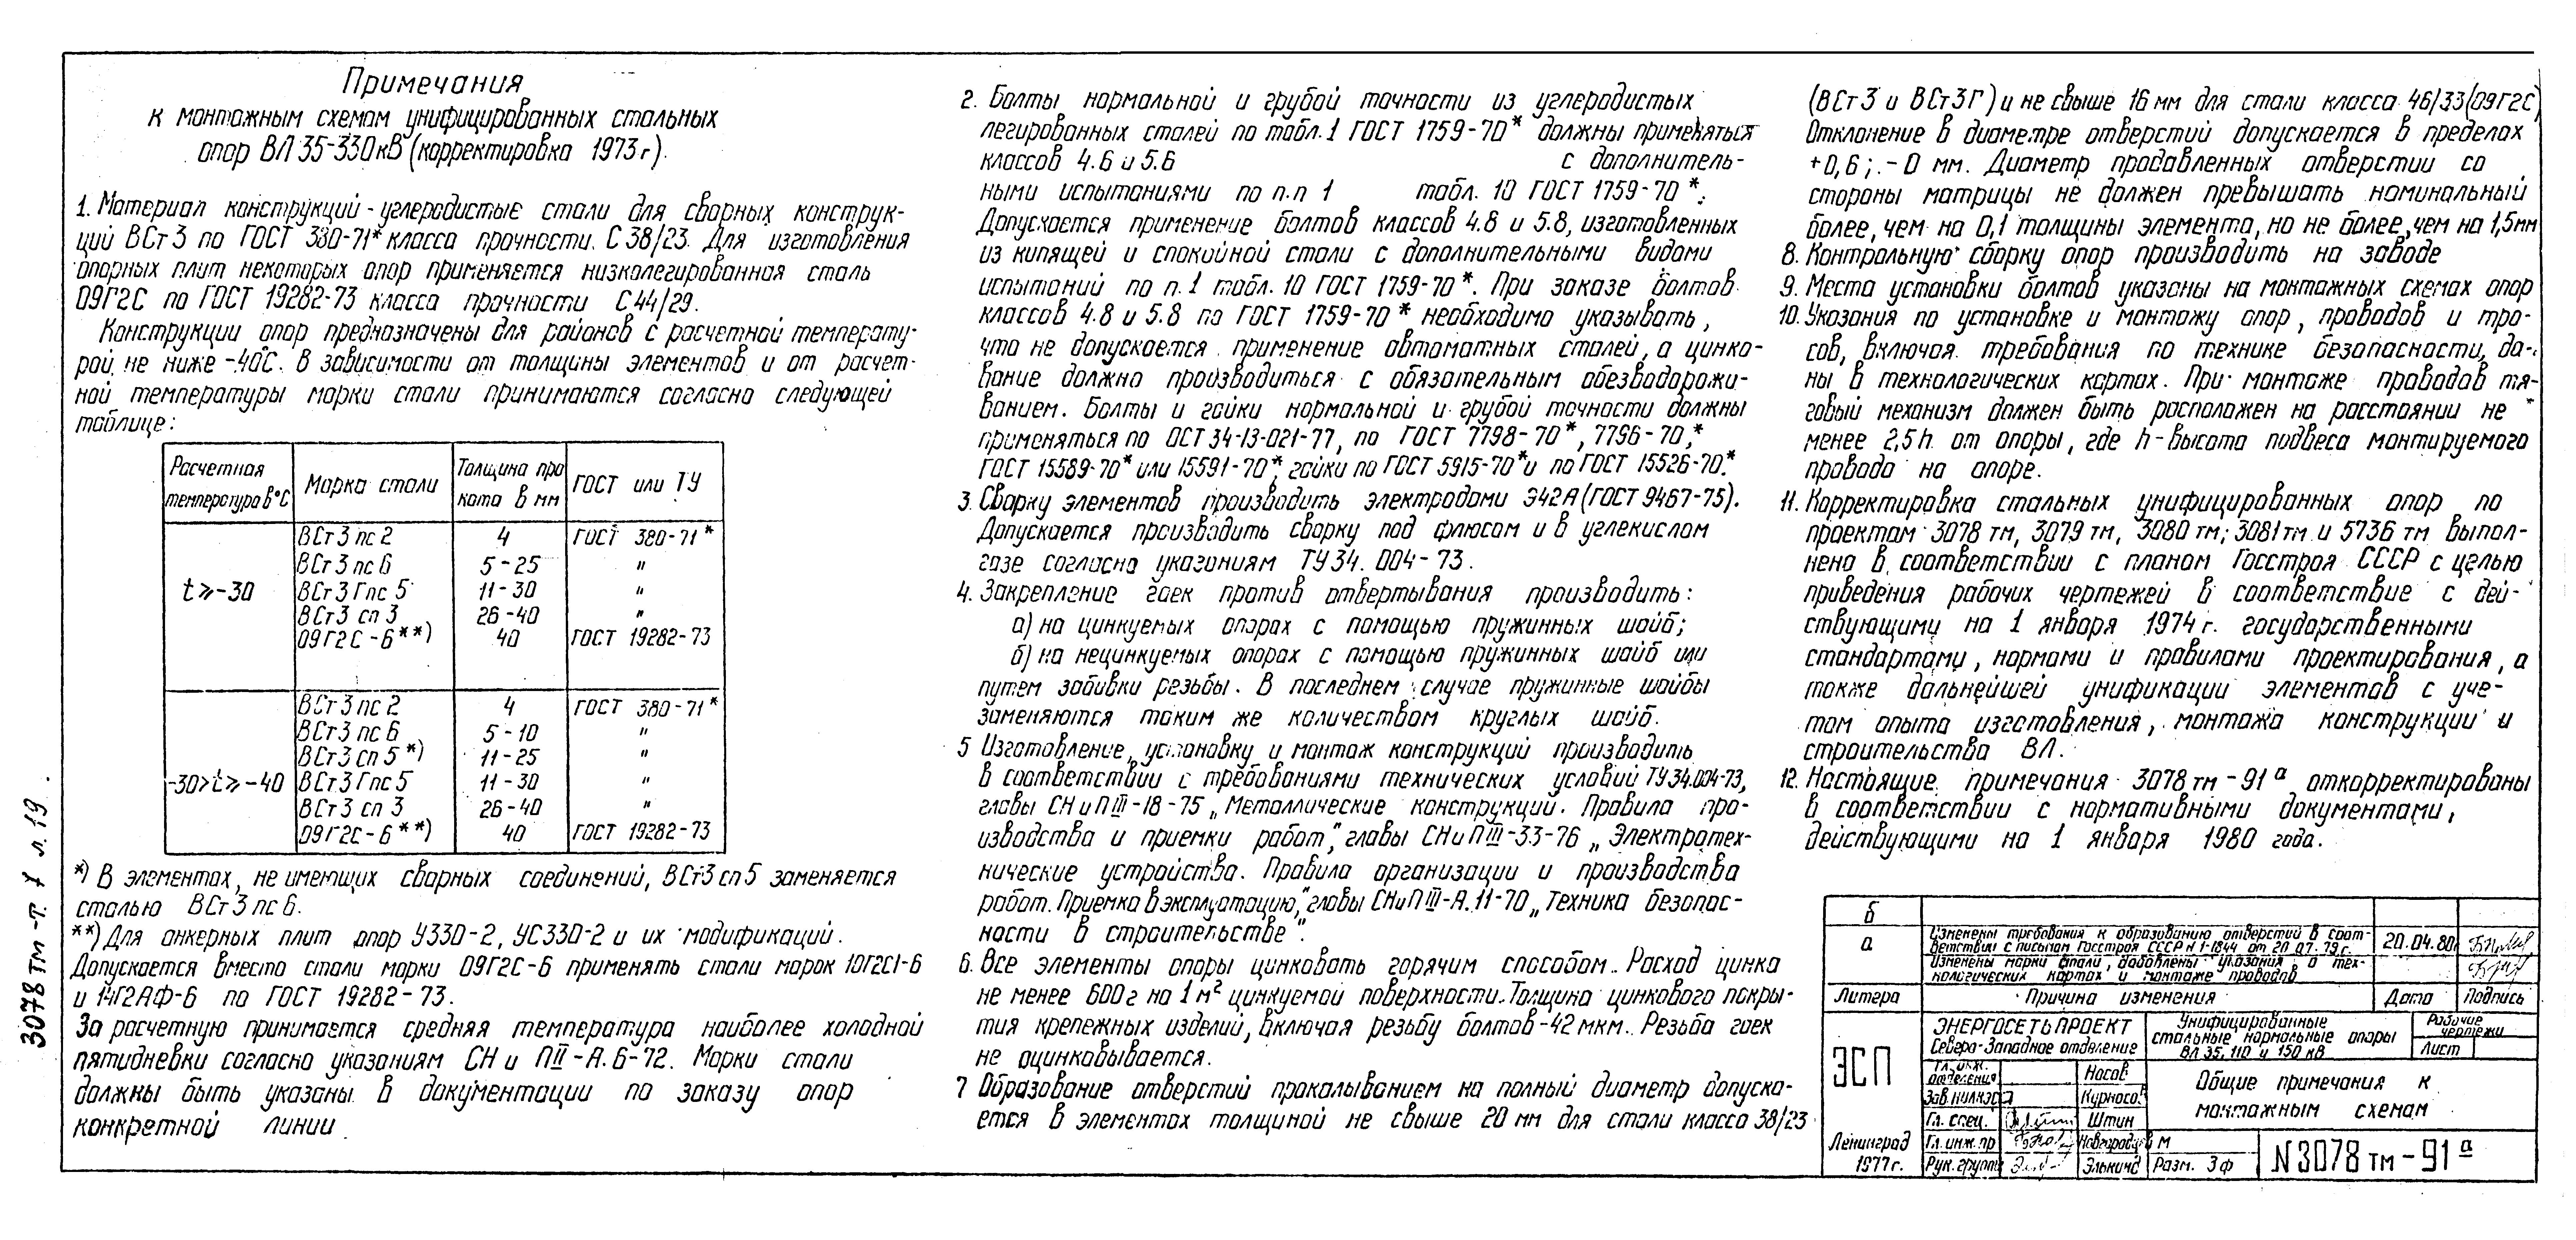 Примечания
к монтажным схемам унифицированных стальных
опор ВЛ 35-330 кВ (корректировка 1973 г).
1. Материал конструкций - углеродистые стали для сварных конструк-
ций ВСт 3 по ГОСТ 380-71* класса прочности С 38/23. Для изготовления
опорных плит некоторых опор применяется низколегированная сталь
09Г2С по ГОСТ 19282-73 класса прочности С44/29.
Конструкции опор предназначены для районов с расчетной температу-
рой не ниже -40°С. В зависимости от толщины элементов и от расчет-
ной температуры марки стали принимаются согласно следующей
таблице:
Расчетная температура в °С | Марка стали | Толщина про ката в мм | ГОСТ или ТУ
t ⩾ -30
ВСт 3 пс 2 4 ГОСТ 380-71*
ВСт 3 пс 6 5-25 "
ВСт 3 Гпс 5 11-30 "
ВСт 3 сп 3 26-40 "
09Г2С-6**) 40 ГОСТ 19282-73
-30 > t ⩾ -40
ВСт 3 пс 2 4 ГОСТ 380-71*
ВСт 3 пс 6 5-10 "
ВСт 3 сп 5*) 11-25 "
ВСт 3 Гпс 5 11-30 "
ВСт 3 сп 3 26-40 "
09Г2С-6**) 40 ГОСТ 19282-73
*) В элементах, не имеющих сварных соединений, ВСт3 сп 5 заменяется
сталью ВСт 3 пс 6.
**) Для анкерных плит опор У330-2, УС330-2 и их модификаций.
Допускается вместо стали марки 09Г2С-6 применять стали марок 10Г2С1-6
и 14Г2АФ-6 по ГОСТ 19282-73.
За расчетную принимается средняя температура наиболее холодной
пятидневки согласно указаниям СН и П II-А.6-72. Марки стали
должны быть указаны в документации по заказу опор
конкретной линии
2. Болты нормальной и грубой точности из углеродистых
легированных сталей по табл. 1 ГОСТ 1759-70* должны применяться
классов 4.6 и 5.6 с дополнитель-
ными испытаниями по п.п 1 табл. 10 ГОСТ 1759-70*.
Допускается применение болтов классов 4.8 и 5.8, изготовленных
из кипящей и спокойной стали с дополнительными видами
испытаний по п. 1 табл. 10 ГОСТ 1759-70*. При заказе болтов
классов 4.8 и 5.8 по ГОСТ 1759-70* необходимо указывать,
что не допускается применение автоматных сталей, а цинко-
вание должно производиться с обязательным обезводорожи-
ванием. Болты и гайки нормальной и грубой точности должны
применяться по ОСТ 34-13-021-77, по ГОСТ 7798-70*, 7796-70,*
ГОСТ 15589-70* или 15591-70*, гайки по ГОСТ 5915-70* и по ГОСТ 15526-70.*
3. Сварку элементов производить электродами Э42А (ГОСТ 9467-75).
Допускается производить сварку под флюсом и в углекислом
газе согласно указаниям ТУ 34. 004-73.
4. Закрепление гаек против отвертывания производить:
а) на цинкуемых опорах с помощью пружинных шайб;
б) на нецинкуемых опорах с помощью пружинных шайб или
путем забивки резьбы. В последнем случае пружинные шайбы
заменяются таким же количеством круглых шайб.
5 Изготовление, установку и монтаж конструкций производить
в соответствии с требованиями технических условий ТУ 34.004-73,
главы СН и П III-18-75 „Металлические конструкций. Правила про-
изводства и приемки работ", главы СН и П III-33-76 „Электротех-
нические устройства. Правила организации и производства
работ. Приемка в эксплуатацию," главы СН и П III-А. 11-70 „Техника безопас-
ности в строительстве".
6. Все элементы опоры цинковать горячим способом. Расход цинка
не менее 600 г на 1 м² цинкуемой поверхности. Толщина цинкового покры-
тия крепежных изделий, включая резьбу болтов-42 мкм. Резьба гаек
не оцинковывается.
7 Образование отверстий прокалыванием на полный диаметр допуска-
ется в элементах толщиной не свыше 20 мм для стали класса 38/23
(ВСт 3 и ВСт 3Г) и не свыше 16 мм для стали класса 46/33 (09Г2С)
Отклонение в диаметре отверстий допускается в пределах
+0,6; -0 мм. Диаметр продавленных отверстии со
стороны матрицы не должен превышать номинальный
более, чем на 0,1 толщины элемента, но не более, чем на 1,5мм
8. Контрольную сборку опор производить на заводе
9. Места установки болтов указаны на монтажных схемах опор
10. Указания по установке и монтажу опор, проводов и тро-
сов, включая требования по технике безопасности, да-
ны в технологических картах. При монтаже проводов тя-
говый механизм должен быть расположен на расстоянии не
менее 2,5h от опоры, где h-высота подвеса монтируемого
провода на опоре.
11. Корректировка стальных унифицированных опор по
проектам 3078 тм, 3079 тм, 3080 тм; 3081тм и 5736 тм выпол-
нена в соответствии с планом Госстроя СССР с целью
приведения рабочих чертежей в соответствие с дей-
ствующими на 1 января 1974 г. государственными
стандартами, нормами и правилами проектирования, а
также дальнейшей унификации элементов с уче-
том опыта изготовления, монтажа конструкции и
строительства ВЛ.
12. Настоящие примечания 3078 тм-91ᵃ откорректированы
в соответствии с нормативными документами,
действующими на 1 января 1980 года.
3078 тм-т. 7 л. 19
б
а Изменены требования к образованию отверстий в соот-
ветствии с письмом Госстроя СССР N 1-1844 от 20.07.79 г. 20.04.80
Изменены марки стали, добавлены указания о тех-
нологических картах и монтаже проводов
Литера Причина изменения Дата Подпись
ЭСП
ЭНЕРГОСЕТЬПРОЕКТ
Северо-Западное отделение
Унифицированные
стальные нормальные опоры
ВЛ 35, 110 и 150 кВ
Рабочие
чертежи
Лист
Гл. инж.
отделения Носов
Курносов
Гл. спец. Штин
Гл. инж. пр
Рук. группы Элькинд
Общие примечания к
монтажным схемам
Ленинград
1977 г.
М
Разм. 3ф
N 3078 тм-91ᵃ